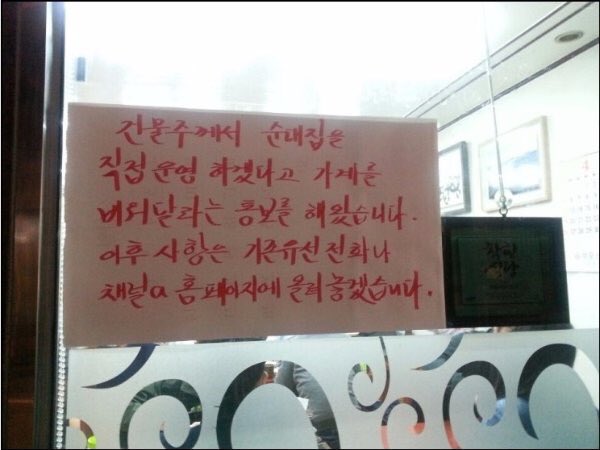 건물주께서 순대집을
직접 운영 하겠다고 가게를
비워달라는 통보를 해왔습니다.
이후 사항은 기존유선전화나
채널a 홈페이지에 올려놓겠습니다.
착한
식당